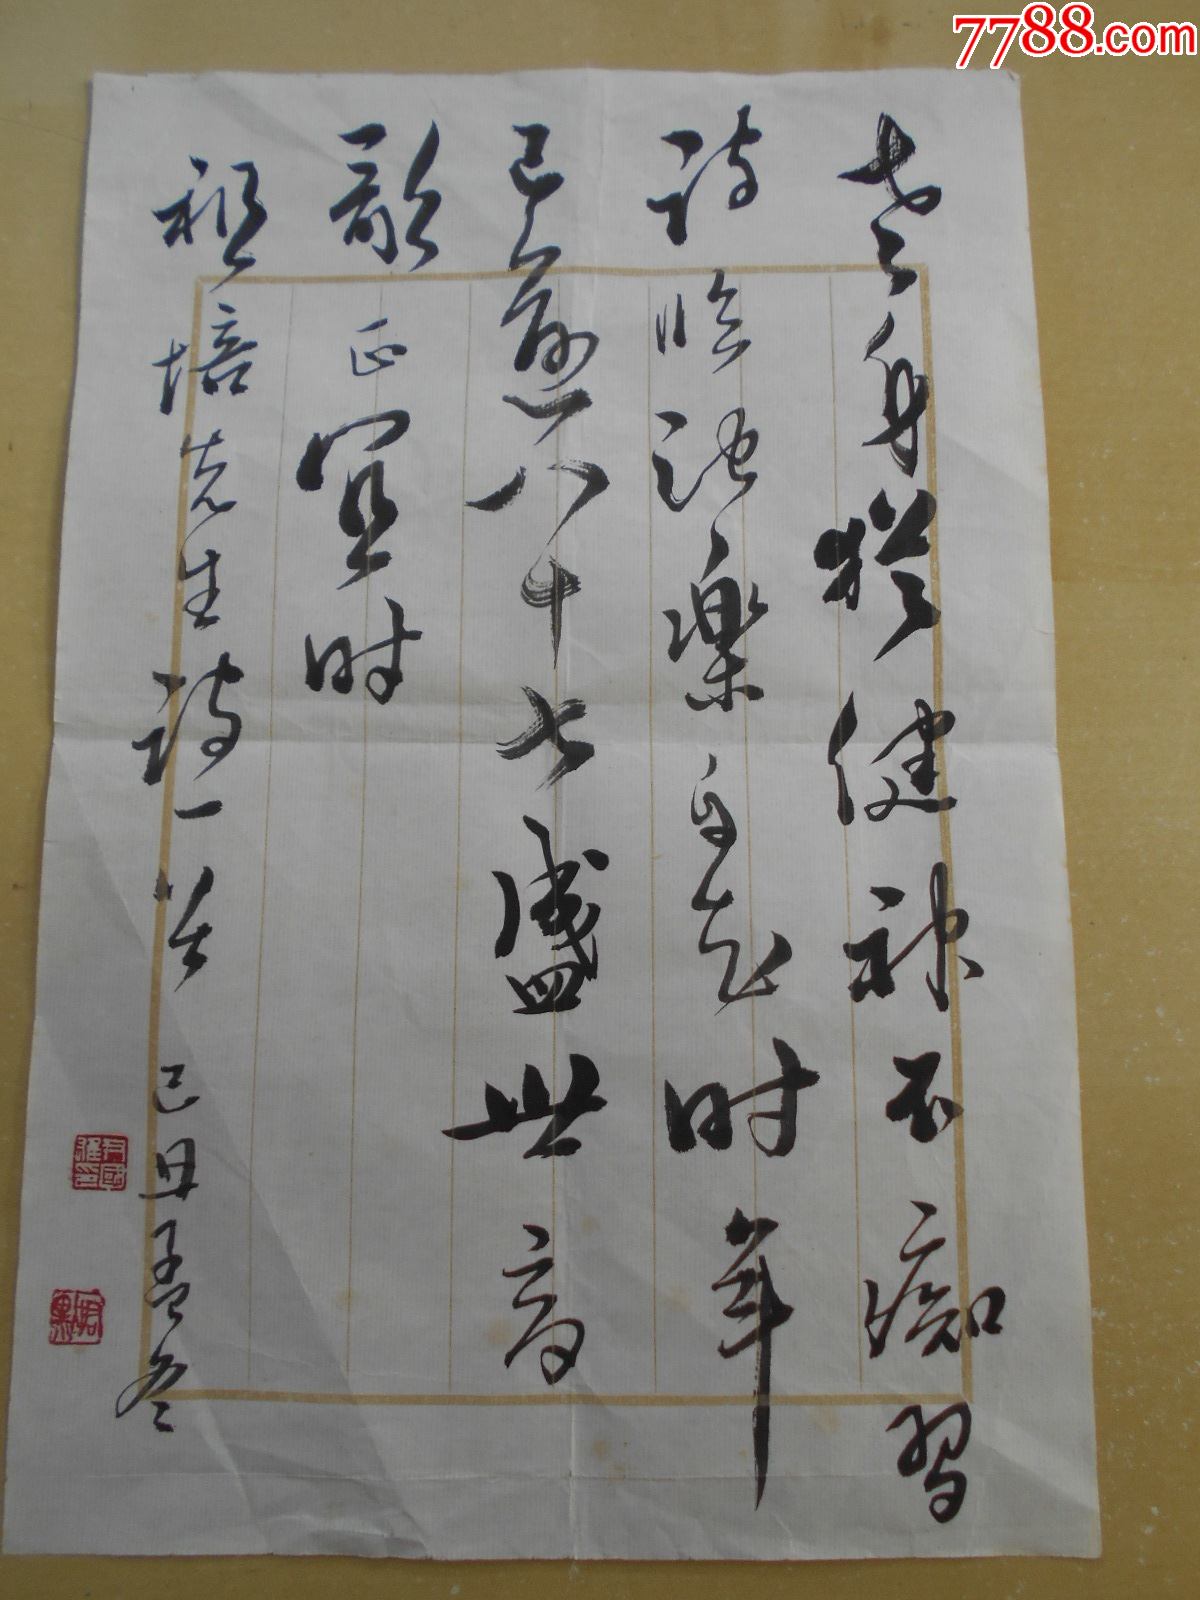 7788.com
老身犹健神不痴习
诗临池乐自知时年
已逾八十七盛世高
歌正宜时
祖培先生诗一首 己丑孟冬